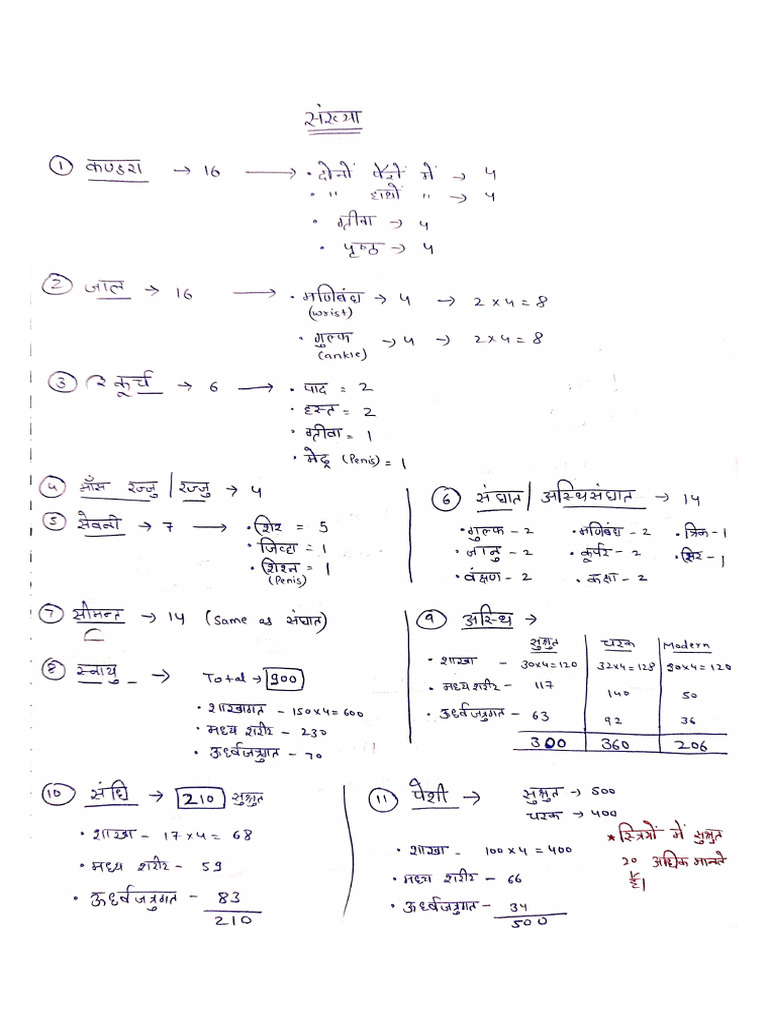 संख्या
① कण्डरा → 16 → • दोनों पैरों में → 4
• " हाथों " → 4
• ग्रीवा → 4
• पृष्ठ → 4
② जाल → 16 → • मणिबंध → 4 → 2 x 4 = 8
(wrist)
• गुल्फ → 4 → 2 x 4 = 8
(ankle)
③ कूर्च → 6 → • पाद = 2
• हस्त = 2
• ग्रीवा = 1
• मेढ्र (Penis) = 1
④ माँस रज्जु / रज्जु → 4
⑤ सेवनी → 7 → • शिर = 5
• जिव्हा = 1
• शिश्न = 1
(Penis)
⑥ संघात / अस्थिसंघात → 14
• गुल्फ - 2 • मणिबंध - 2 • त्रिक - 1
• जानु - 2 • कूर्पर - 2 • सिर - 1
• वंक्षण - 2 • कक्षा - 2
⑦ सीमन्त → 14 (Same as संघात)
⑧ स्नायु → Total → 900
• शाखागत - 150x4 = 600
• मध्य शरीर - 230
• ऊर्ध्वजत्रुगत - 70
⑨ अस्थि →
सुश्रुत चरक Modern
• शाखा - 30x4=120 32x4=128 30x4=120
• मध्य शरीर - 117 140 50
• ऊर्ध्वजत्रुगत - 63 92 36
300 360 206
⑩ संधि → 210 सुश्रुत
• शाखा - 17x4 = 68
• मध्य शरीर - 59
• ऊर्ध्वजत्रुगत - 83
210
⑪ पेशी → सुश्रुत → 500
चरक → 400
• शाखा - 100 x 4 = 400
• मध्य शरीर - 66
• ऊर्ध्वजत्रुगत - 34
500
* स्त्रियों में सुश्रुत
20 अधिक मानते
है।